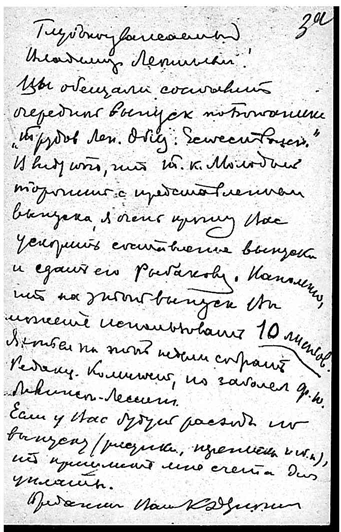 3а
Глубокоуважаемый
Владимир Леонтьевич!
Вы обещали составить
очередной выпуск по ботанике
"Трудов Лен. Общ. Естествоисп."
В виду того, что т. к. Молодых
торопит с представлением
выпуска, я очень прошу Вас
ускорить составление выпуска
и сдать его Рыбакову. Напомню,
что на этот выпуск Вы
можете использовать 10 листов.
Я хотел на этой неделе собрать
Редакц. Комитет, но заболел Ф. Ю.
Левинсон-Лессинг.
Если у Вас будут расходы по
выпуску (рисунки, переписка и т.п.),
то пришлите мне счета для
уплаты.
Преданный Вам